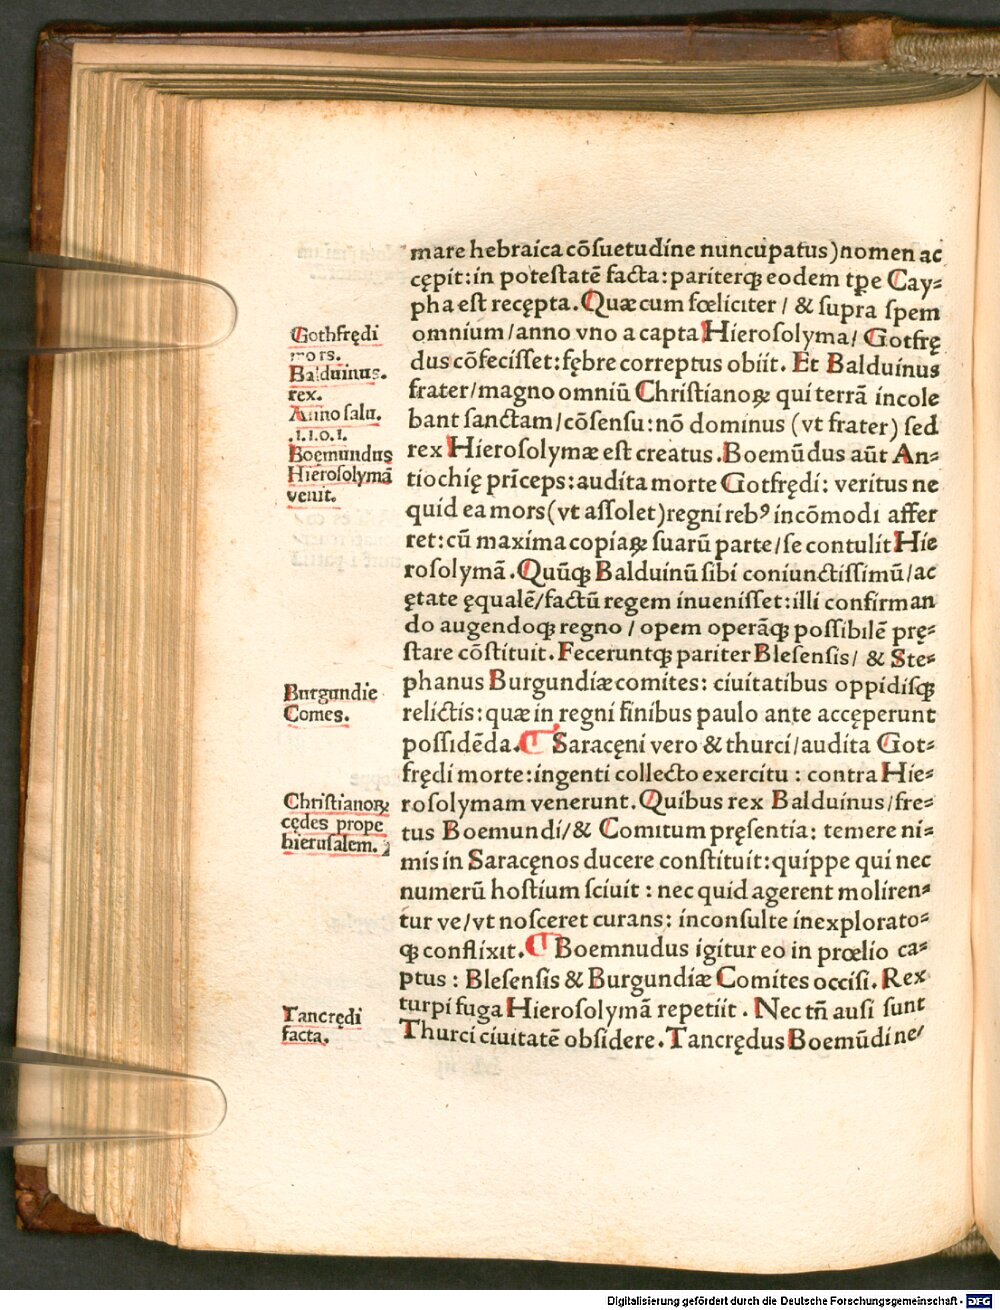 mare hebraica cōſuetudine nuncupatus) nomen ac
cępit: in poteſtatē facta: pariterqꝫ eodem tꝑe Cay⸗
pha eſt recępta. Quæ cum fœliciter / & ſupra ſpem
omnium / anno vno a capta Hieroſolyma / Gotfrę
dus cōfeciſſet: fębre correptus obiit. Et Balduinus
frater / magno omniū Christianoꝝ qui terrā incole
bant ſanctam / cōſenſu: nō dominus (vt frater) ſed
rex Hieroſolymæ eſt creatus. Boemūdus aūt An⸗
tiochię prīceps: audita morte Gotfrędi: veritus ne
quid ea mors (vt aſſolet) regni rebꝰ incōmodi affer
ret: cū maxima copiaꝝ ſuarū parte / ſe contulit Hie
roſolymā. Quūqꝫ Balduinū ſibi coniunctiſſimū / ac
ętate ęqualē / factū regem inueniſſet: illi confirman
do augendoqꝫ regno / opem operāqꝫ poſſibilē prę⸗
ſtare cōſtituit. Feceruntqꝫ pariter Bleſenſis / & Ste⸗
phanus Burgundiæ comites: ciuitatibus oppidiſqꝫ
relictis: quæ in regni finibus paulo ante accęperunt
poſſidēda. ¶ Saracęni vero & thurci / audita Got⸗
frędi morte: ingenti collecto exercitu : contra Hie⸗
roſolymam venerunt. Quibus rex Balduinus / fre⸗
tus Boemundi / & Comitum pręſentia: temere ni⸗
mis in Saracęnos ducere conſtituit: quippe qui nec
numerū hoſtium ſciuit : nec quid agerent moliren⸗
tur ve / vt noſceret curans: inconſulte inexplorato⸗
qꝫ conflixit. ¶ Boemnudus igitur eo in prœlio ca⸗
ptus : Bleſenſis & Burgundiæ Comites occiſi. Rex
turpi fuga Hieroſolymā repetiit . Nec tñ auſi ſunt
Thurci ciuitatē obſidere. Tancrędus Boemūdi ne/
Gothfrędi
mors.
Balduinus.
rex.
Anno ſalu.
.1.1.0.1.
Boemundus
Hieroſolymā
venit.
Burgundie
Comes.
Christianoꝝ
cędes prope
hieruſalem.
Tancrędi
facta.
Digitalisierung gefördert durch die Deutsche Forschungsgemeinschaft - DFG